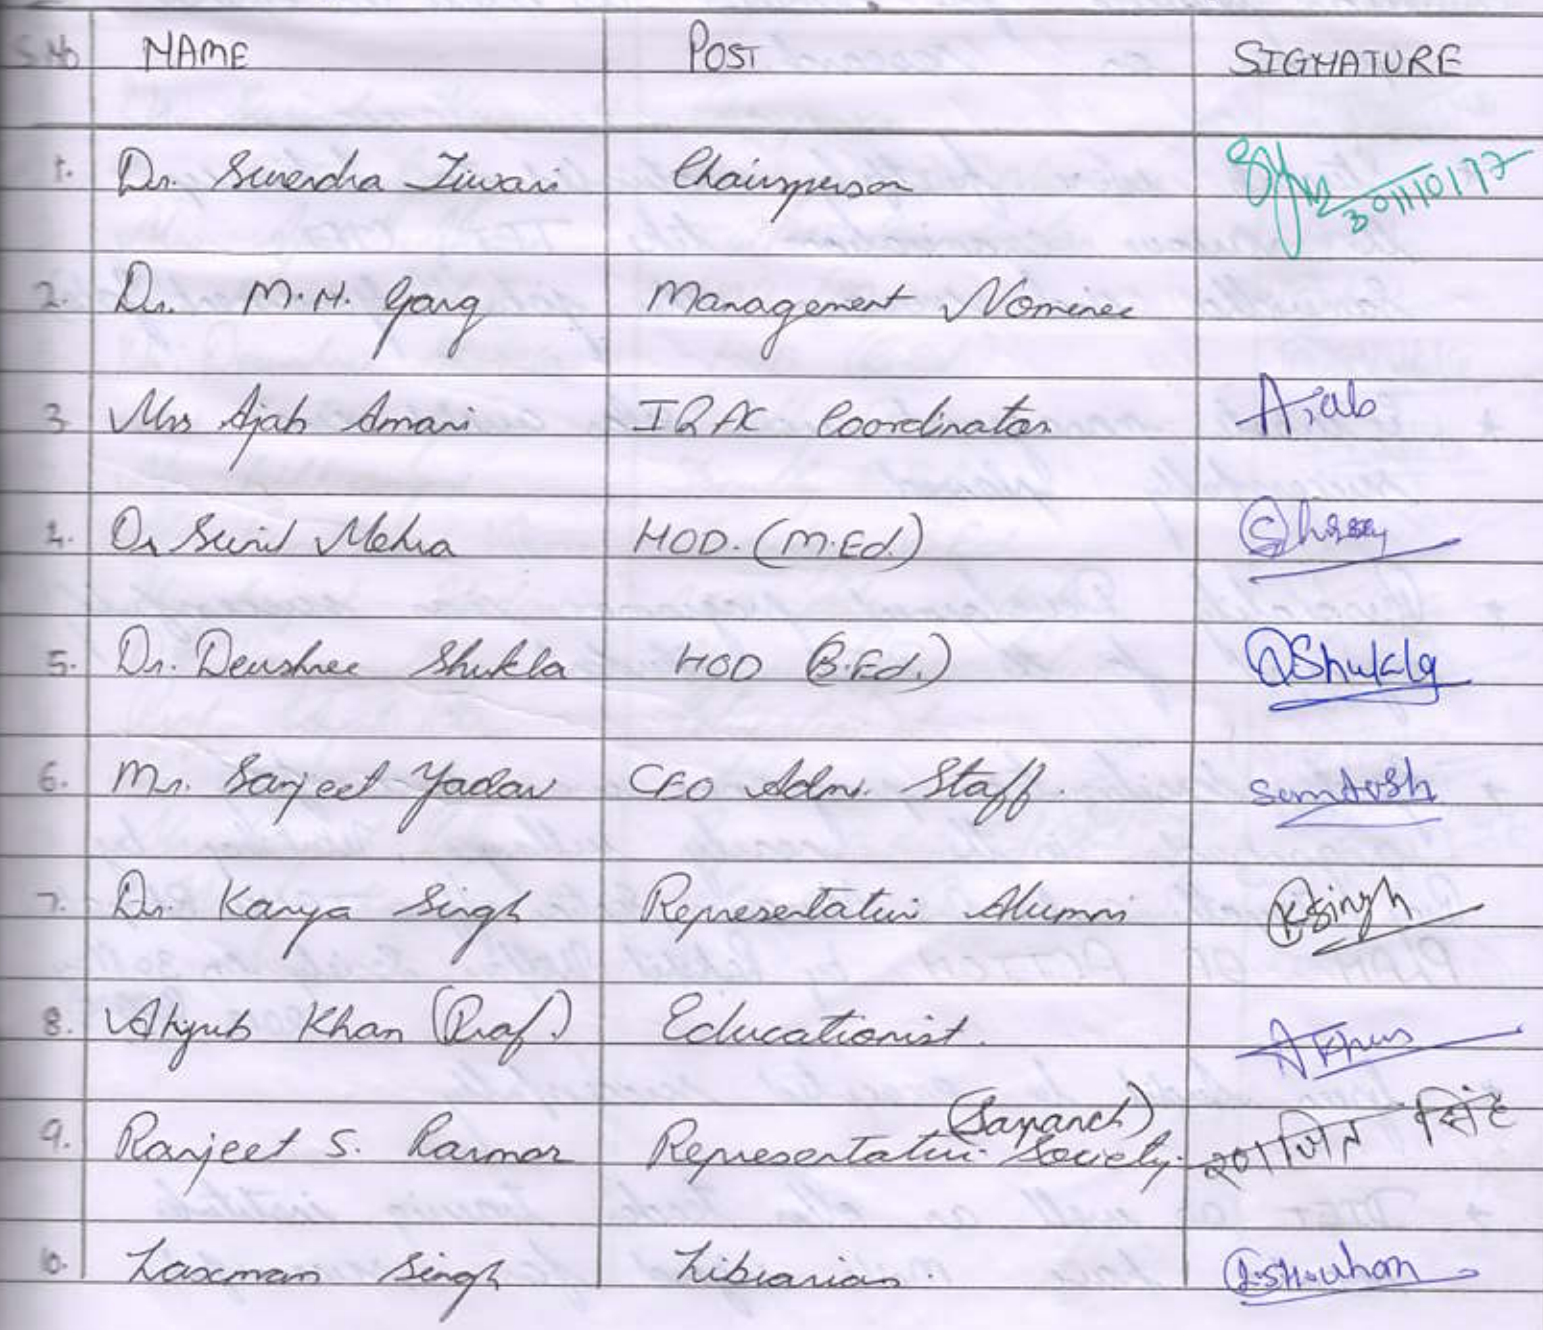 S.No NAME POST SIGNATURE
1. Dr. Surendra Tiwari Chairperson 30/10/17
2. Dr. M.H. Garg Management Nominee
3. Mrs Ajab Amari IQAC Coordinator Ajab
4. Dr Sunil Mehra HOD. (M.Ed.)
5. Dr. Deushree Shukla HOD (B.Ed.) DShukla
6. Mr. Sanjeet Yadav CEO Adm. Staff. Santosh
7. Dr. Kanya Singh Representativ Alumni KSingh
8. Ahyub Khan (Prof.) Educationist. AKhan
9. Ranjeet S. Parmar Representativ. Society. (Sarpanch) सिंह
10. Laxman Singh Librarian.